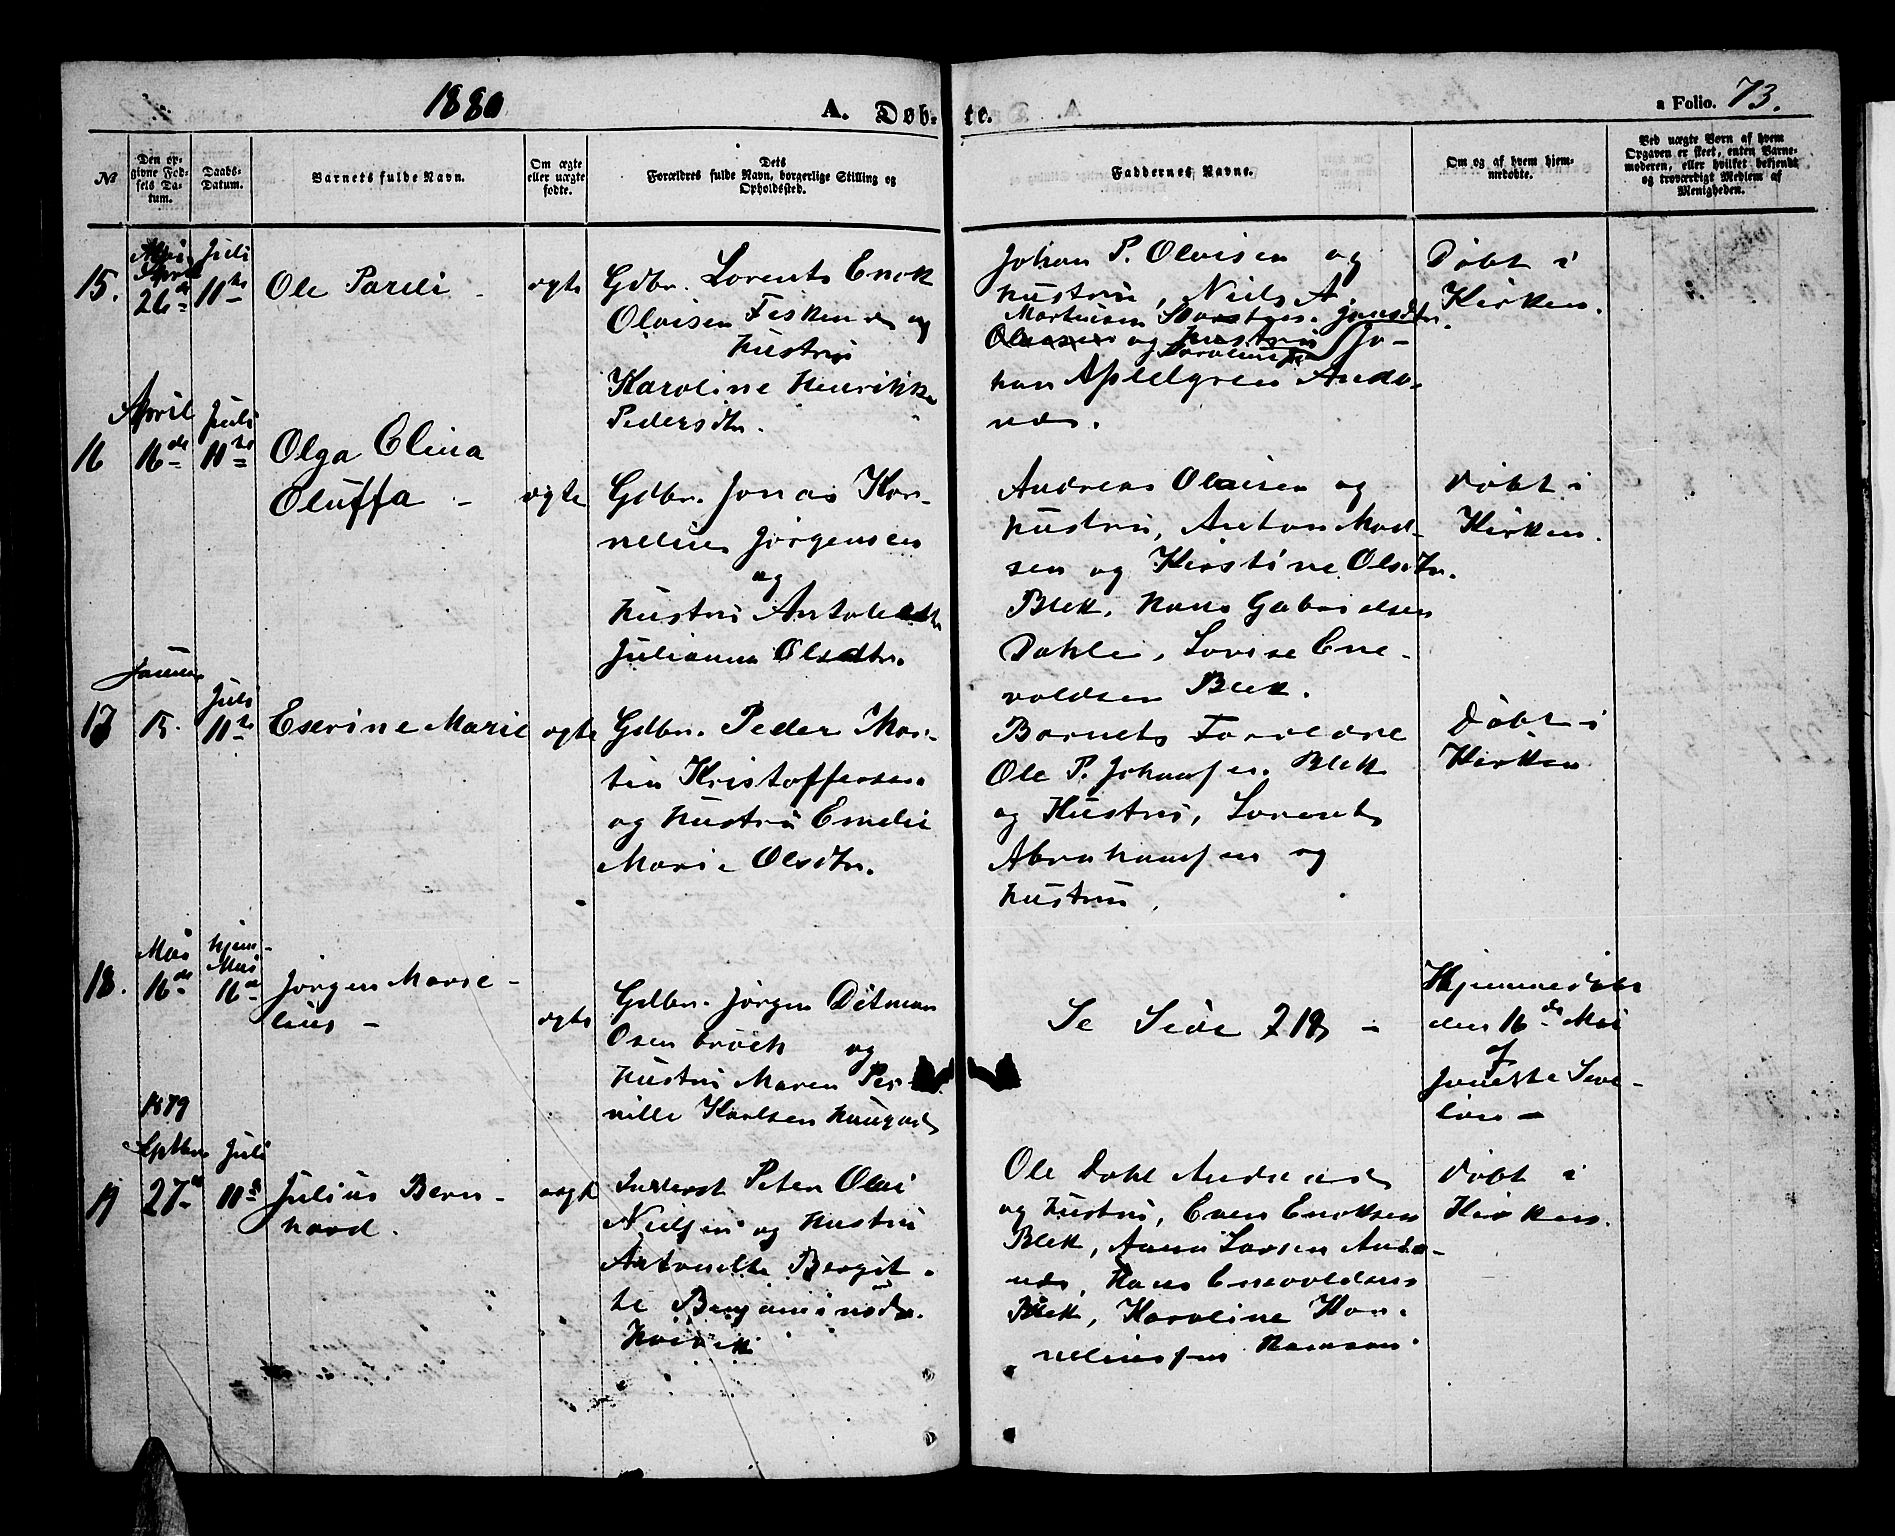 1880
A. Døb-
te.
a Folio. 73.
No
Den op-
givne Fød-
sels Da-
tum.
Daabs-
Datum.
Barnets fulde Navn.
Om ægte
eller uægte
fødte.
Dets
Forældres fulde Navn, borgerlige Stilling og
Opholdssted.
Faddernes Navne.
Om og af hvem hjem-
medøbte.
Ved uægte Børn af hvem
Opgaven er skeet, enten Barne-
moderen, eller hvilket bekjendt
og troværdigt Medlem af
Menigheden.
15.
26
Juli
11te
Ole Pareli
ægte
Gdbr. Lorents Enok
Olaisen Fiskenæs og
Hustru
Karoline Henrikke
Pedersdtr.
Johan P. Olaisen og
Hustru, Niels A
Martinsen
og Hustru Jo-
han Apelgren Ande-
næs.
Døbt i
Kirken.
16
April
16de
Juli
11te
Olga Elina
Oluffa
ægte
Gdbr. Jonas Kor-
nelius Jørgensen
og
Hustru
Julianna Olsdtr.
Andreas Olaisen og
Hustru, Anton Mad-
sen og Kirstine Olsdtr.
Blek, Hans Gabrielsen
Dahle, Lovise Ene-
voldsen Blek.
Døbt i
Kirken.
17
15.
Juli
11te
Eserine Marie
ægte
Gdbr. Peder Mar-
tin Kristoffersen
og Hustru Emelie
Marie Olsdtr.
Barnets Forældre
Ole P. Johansen Blek
og Hustru, Lorents
Abrahamsen og
Hustru.
Døbt i
Kirken
18.
Mai
16de
hjem-
Mai
16de
Jørgen Marse-
lius
ægte
Gdbr. Jørgen Ditman
Osenbrock og
Hustru Maren Per-
nille Karlsen Haugnes
Se Side 218
Hjemmedøbt
den 16de Mai
af
19
1879
Septbr
27
Juli
11te
Julius Bern-
hard.
ægte
Inderst Peter Olai
Nielsen og Hustru
Antonette Bergit-
te Benjaminsdtr.
Ole Dahl Andenæs
og Hustru, Even Enoksen
Blek, Anna Larsen Ande-
næs, Hans Enevoldsens
Blek, Karoline Kor-
neliussen Ramsaa
Døbt i
Kirken.